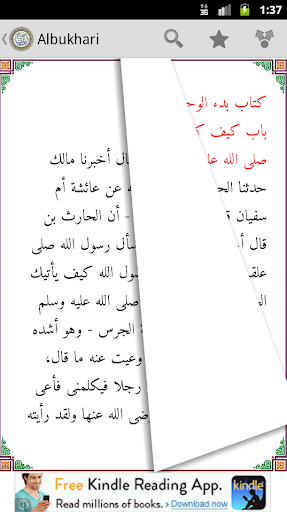 3G 1:37
Albukhari
كتاب بدء
باب كيف
صلى الله أخبرنا مالك
حدثنا عن عائشة أم
سفيان - أن الحارث بن
قال رسول الله صلى
الله كيف يأتيك
صلى الله عليه وسلم
الجرس - وهو أشده
وعيت عنه ما قال،
رجلا فيكلمنى فأعى
الله عنها ولقد رأيته
Free Kindle Reading App.
Read millions of books. Download now
kindle